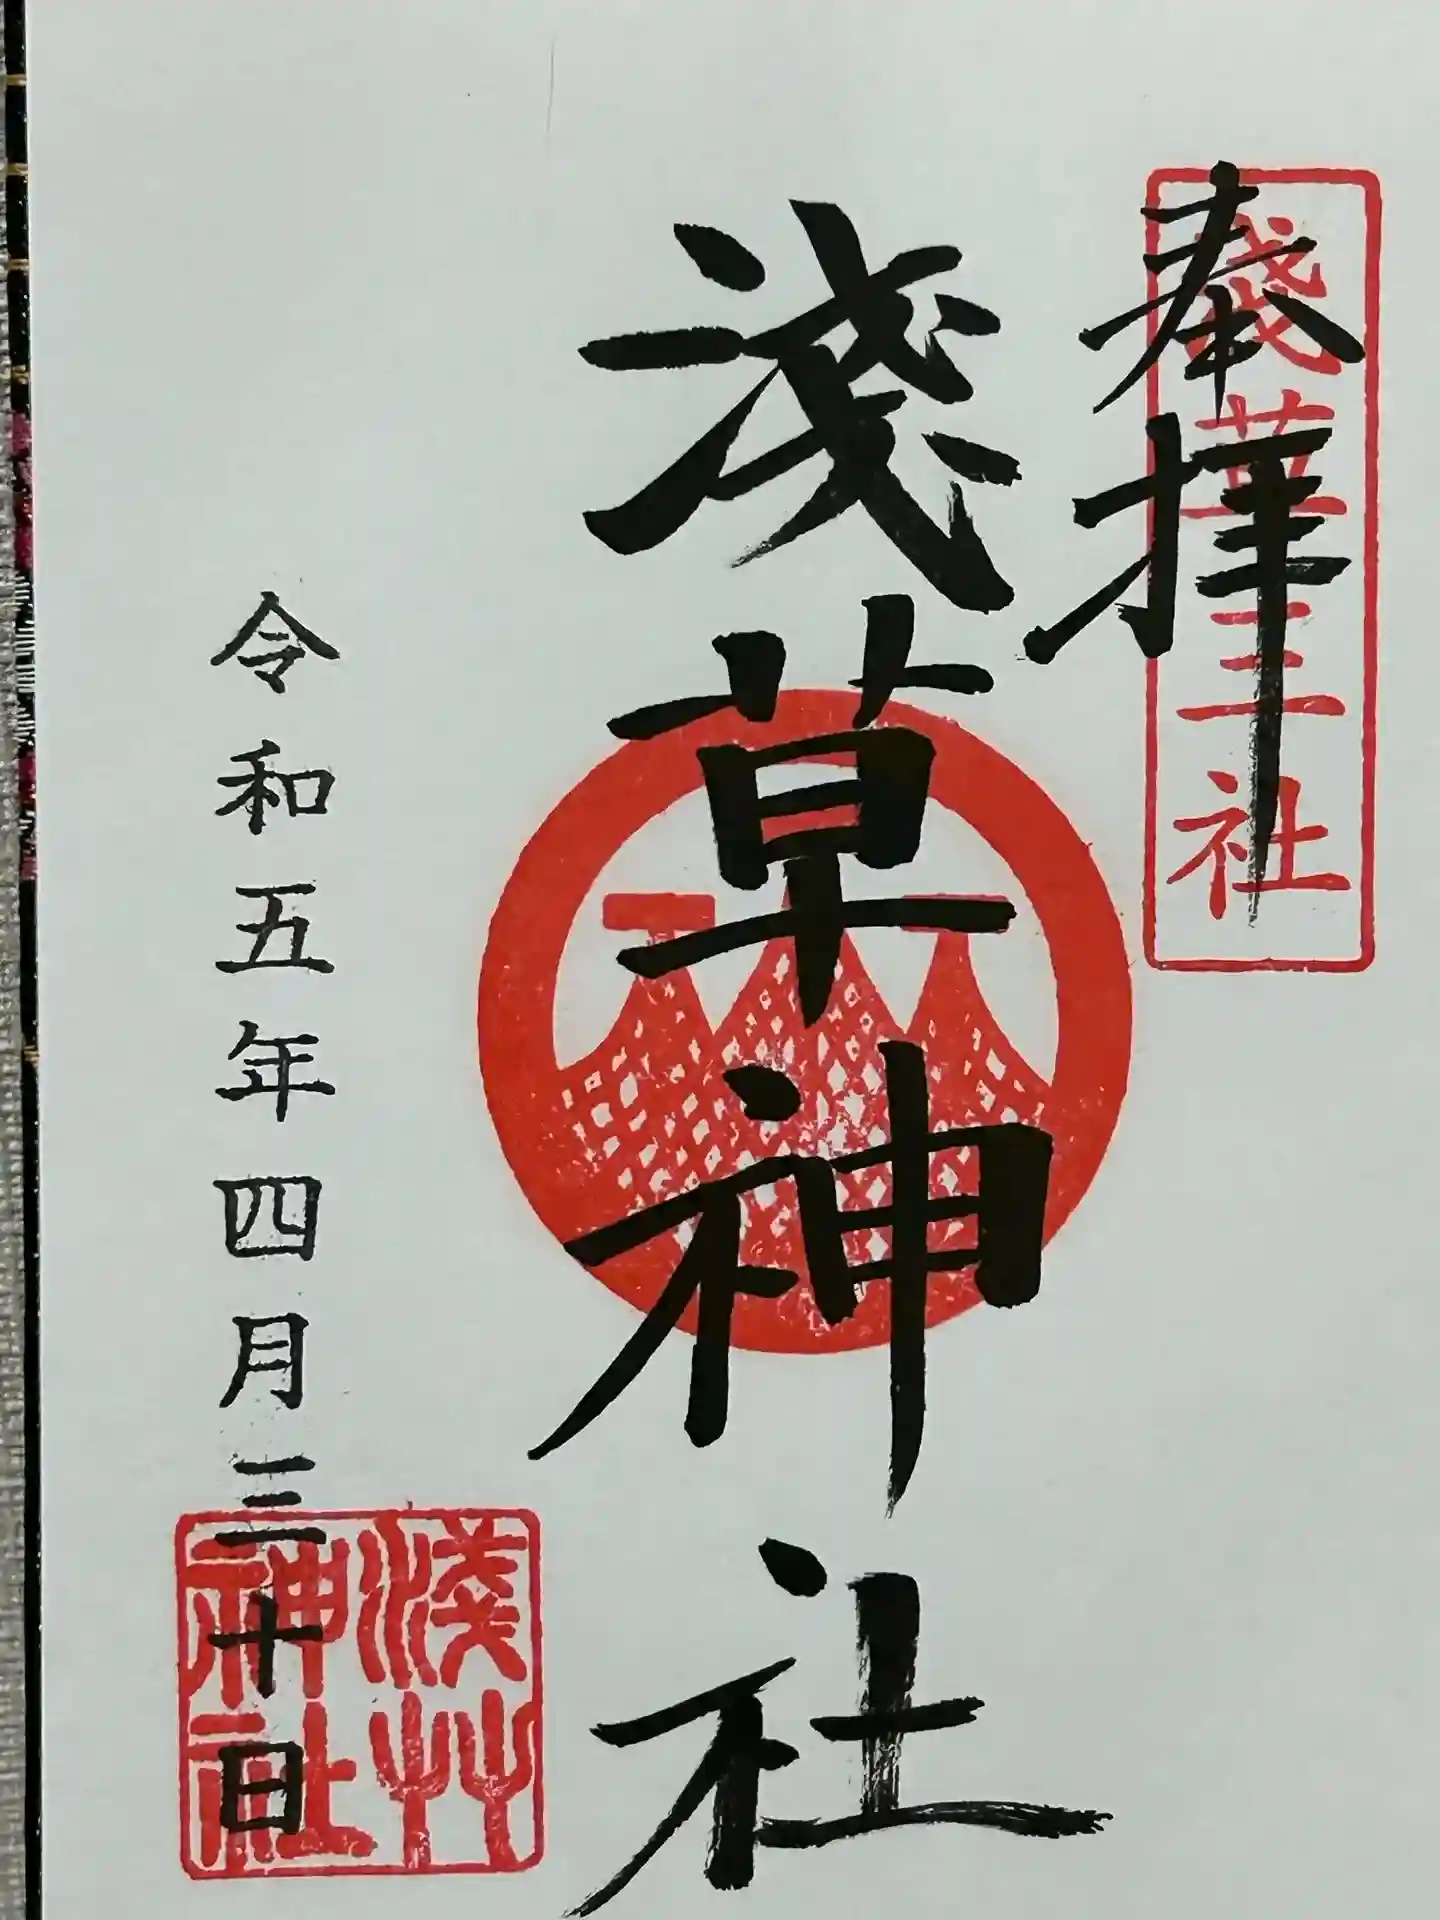 奉拝
淺草三社
淺草神社
令和五年四月三十日
淺艸神社